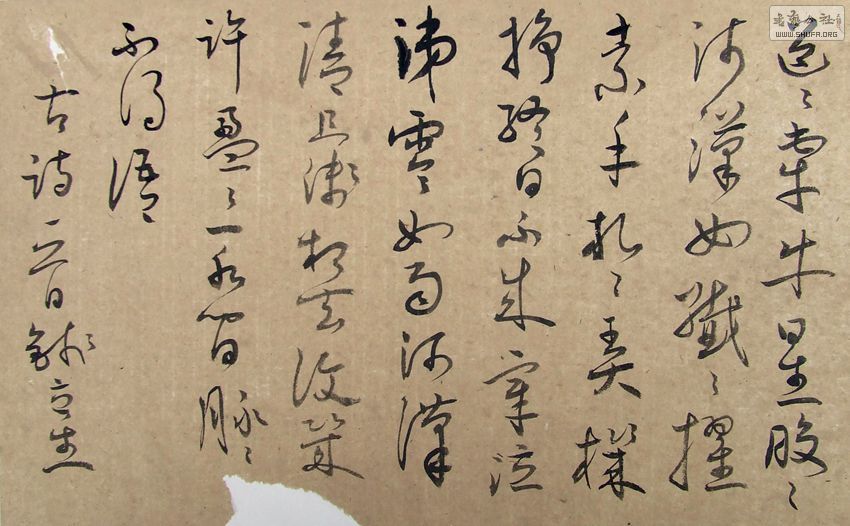 迢〻牽牛星皎〻
河漢女纖〻擢
素手札〻弄機
杼終日不成章泣
涕零如雨河漢
清且淺相去復幾
許盈〻一水間脉〻
不得語
古詩一首
WWW.SHUFA.ORG